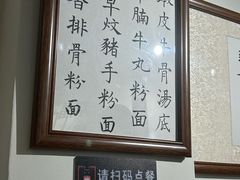 皮牛骨湯底
腩牛丸粉面
草炆豬手粉面
香排骨粉面
请扫码点餐